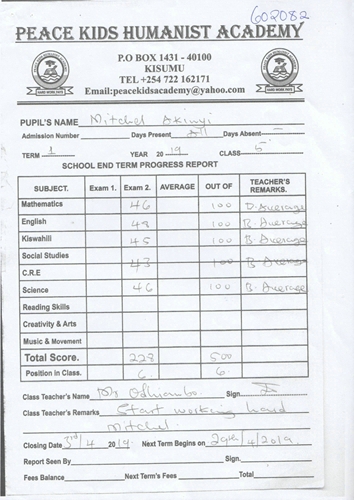 602082
PEACE KIDS HUMANIST ACADEMY
P.O BOX 1431 - 40100
KISUMU
TEL +254 722 162171
Email:peacekidsacademy@yahoo.com
PUPIL'S NAME Mitchel Akinyi
Admission Number Days Present All Days Absent —
TERM 1 YEAR 2019 CLASS 5
SCHOOL END TERM PROGRESS REPORT
SUBJECT. Exam 1. Exam 2. AVERAGE OUT OF TEACHER'S REMARKS.
Mathematics 46 100 B. Average
English 48 100 B. Average
Kiswahili 45 100 B. Average
Social Studies 43 100 B. Average
C.R.E
Science 46 100 B. Average
Reading Skills
Creativity & Arts
Music & Movement
Total Score. 228 500
Position in Class. 6. 6.
Class Teacher's Name Mrs Odhiambo Sign.
Class Teacher's Remarks Start working hard
Mitchel.
Closing Date 3rd/4/2019 Next Term Begins on 29th/4/2019
Report Seen By Sign.
Fees Balance Next Term's Fees Total